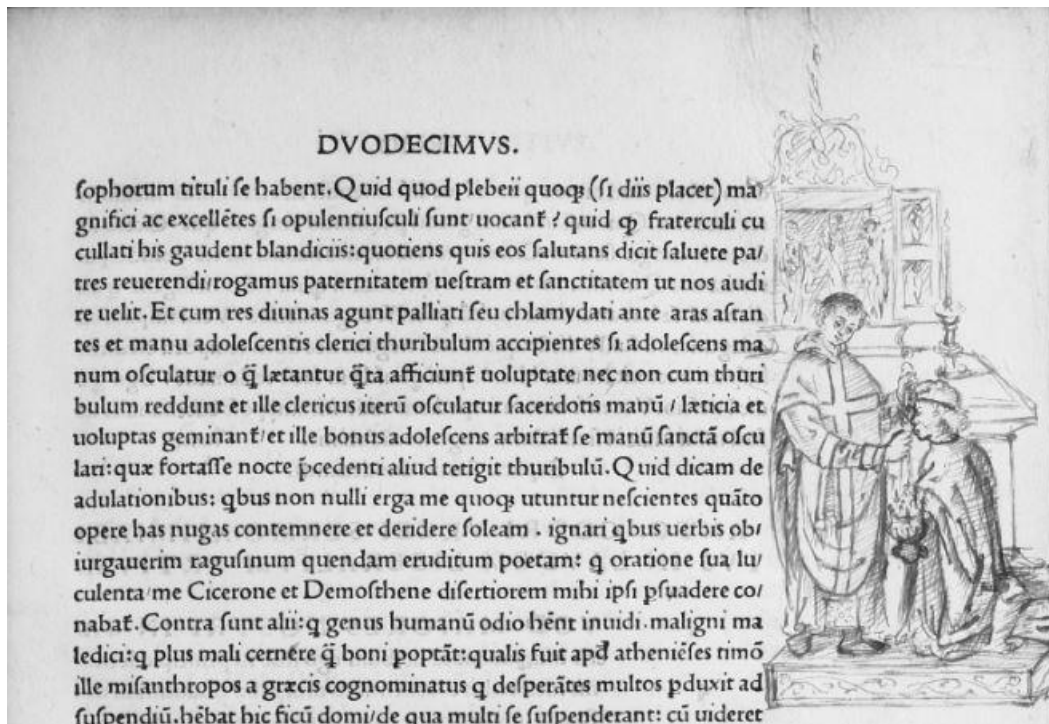 DVODECIMVS.
ſophorum tituli ſe habent. Quid quod plebeii quoqꝫ (ſi diis placet) ma
gnifici ac excellētes ſi opulentiuſculi ſunt/uocant᷑ ? quid ꝙ fraterculi cu
cullati his gaudent blandiciis: quotiens quis eos ſalutans dicit ſaluete pa/
tres reuerendi/rogamus paternitatem ueſtram et ſanctitatem ut nos audi
re uelit. Et cum res diuinas agunt palliati ſeu chlamydati ante aras aſtan
tes et manu adoleſcentis clerici thuribulum accipientes ſi adoleſcens ma
num oſculatur o q̄ lætantur q̄ta afficiunt᷑ uoluptate nec non cum thuri
bulum reddunt et ille clericus iterū oſculatur ſacerdotis manū / læticia et
uoluptas geminant᷑/et ille bonus adoleſcens arbitrat᷑ ſe manū ſanctā oſcu
lari: quæ fortaſſe nocte p̄cedenti aliud tetigit thuribulū. Quid dicam de
adulationibus: qbus non nulli erga me quoqꝫ utuntur neſcientes quāto
opere has nugas contemnere et deridere ſoleam . ignari qbus uerbis ob/
iurgauerim raguſinum quendam eruditum poetam: q oratione ſua lu/
culenta/me Cicerone et Demoſthene diſertiorem mihi ipſi pſuadere co/
nabat᷑. Contra ſunt alii: q genus humanū odio hēnt inuidi. maligni ma
ledici: q plus mali cernere q̄ boni poptāt: qualis fuit apd᷑ atheniēſes timō
ille miſanthropos a græcis cognominatus q deſperātes multos pduxit ad
ſuſpendiū. hēbat hic ficū domi/de qua multi ſe ſuſpenderant: cū uideret